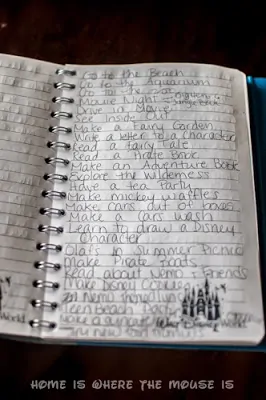 Go to the Beach
Go to the Aquarium
Go to the zoo
Movie Night - Bigworld Jungle Book
Drive in Movie
See Inside Out
Make a Fairy Garden
Write a letter to a Character
Read a Fairy Tale
Read a Pirate Book
Make an Adventure Book
Explore the Wilderness
Have a Tea Party
Make mickey waffles
Make Cars out of boxes
Make a Cars wash
Learn to draw a Disney
Character
Olafs in Summer Picnic
Make Pirate Foods
Read about Nemo + Friends
Make Disney Cookies
Nemo
Teen Beach Party
Make a
Walt Disney World
World
HOME IS WHERE THE MOUSE IS